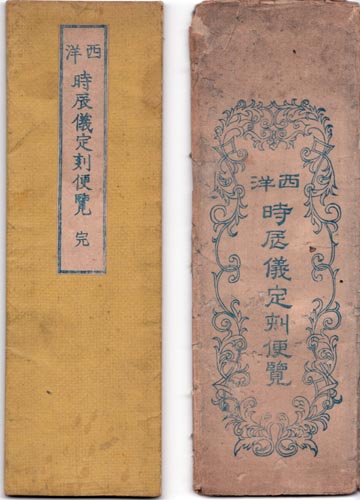 西洋
時辰儀定刻便覽 完
西洋
時辰儀定刻便覽